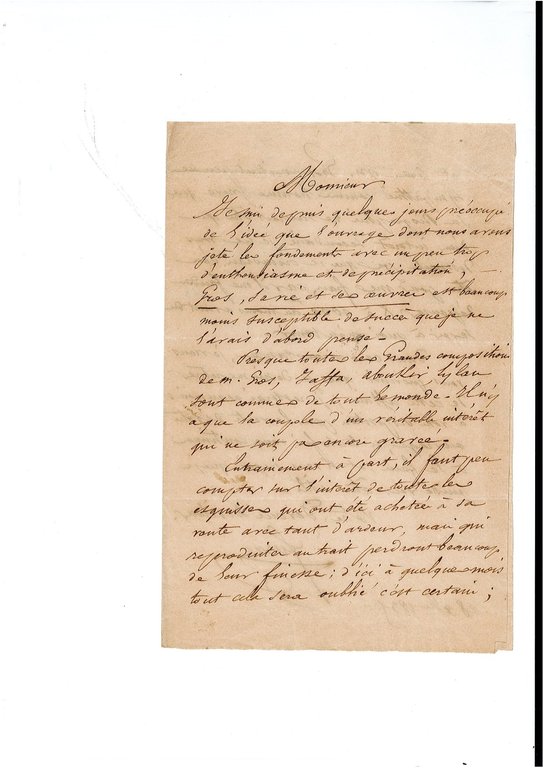 Monsieur
Je suis depuis quelques jours préoccupé
de l'idée que l'ouvrage dont nous avons
jeté les fondements avec un peu trop
d'enthousiasme et de précipitation,
Gros, sa vie et ses œuvres est beaucoup
moins susceptible de succès que je ne
l'avais d'abord pensé.
Presque toutes les Grandes compositions
de m. Gros, Jaffa, aboukir, Eylau
sont connues de tout le monde. Il n'y
a que la coupole d'un véritable intérêt
qui ne soit pas encore gravée.
Entrainement à part, il faut peu
compter sur l'intérêt de toutes les
esquisses qui ont été achetées à sa
vente avec tant d'ardeur, mais qui
reproduites au trait perdront beaucoup
de leur finesse; d'ici à quelques mois
tout cela sera oublié c'est certain;